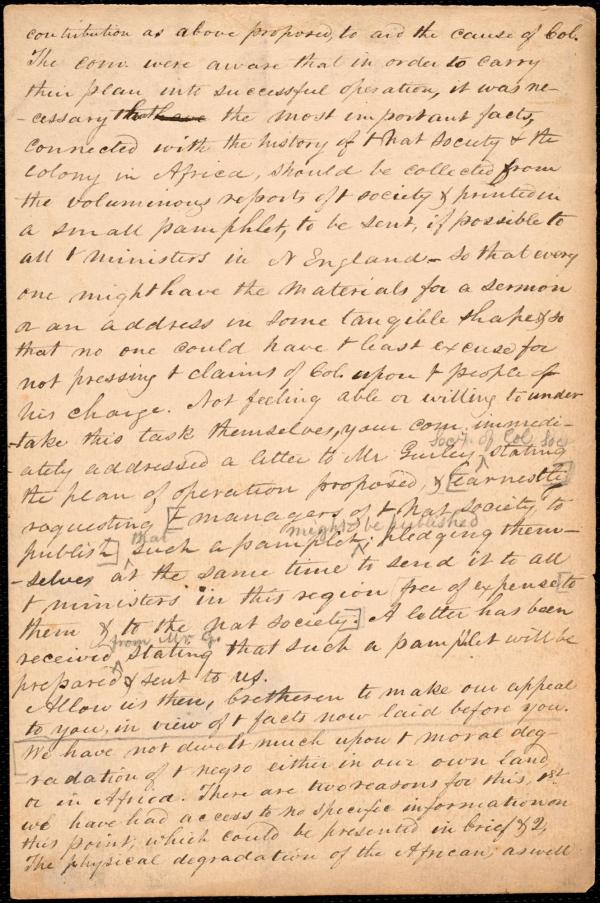 contribution as above proposed, to aid the cause of Col.
The com. were aware that in order to carry
their plan into successful operation, it was ne-
-cessary that have the most important facts,
connected with the history of t Nat Society & the
Colony in Africa, should be collected from
the voluminous reports of t society & printed in
a small pamphlet, to be sent, if possible to
all t ministers in N England - so that every
one might have the materials for a sermon
or an address in some tangible shape & so
that no one could have t least excuse for
not pressing t claims of Col. upon t people of
his charge. Not feeling able or willing to under
-take this task themselves, your com. immedi-
Secy. of Col. Soc
ately addressed a letter to Mr Gurley, stating
the plan of operation proposed, & [earnestly
requesting [t managers of t Nat society to
that might be published
publish] such a pamphlet; pledging them-
-selves at the same time to send it to all
t ministers in this region [free of expense to
them & to the Nat Society.] A letter has been
from Mr. G.
received stating that such a pamphlet will be
prepared & sent to us.
Allow us then, bretheren to make our appeal
to you, in view of t facts now laid before you.
We have not dwelt much upon t moral deg-
radation of t negro either in our own land
or in Africa. There are two reasons for this, 1st
we have had access to no specific information on
this point, which could be presented in brief & 2,
The physical degradation of the African, as well